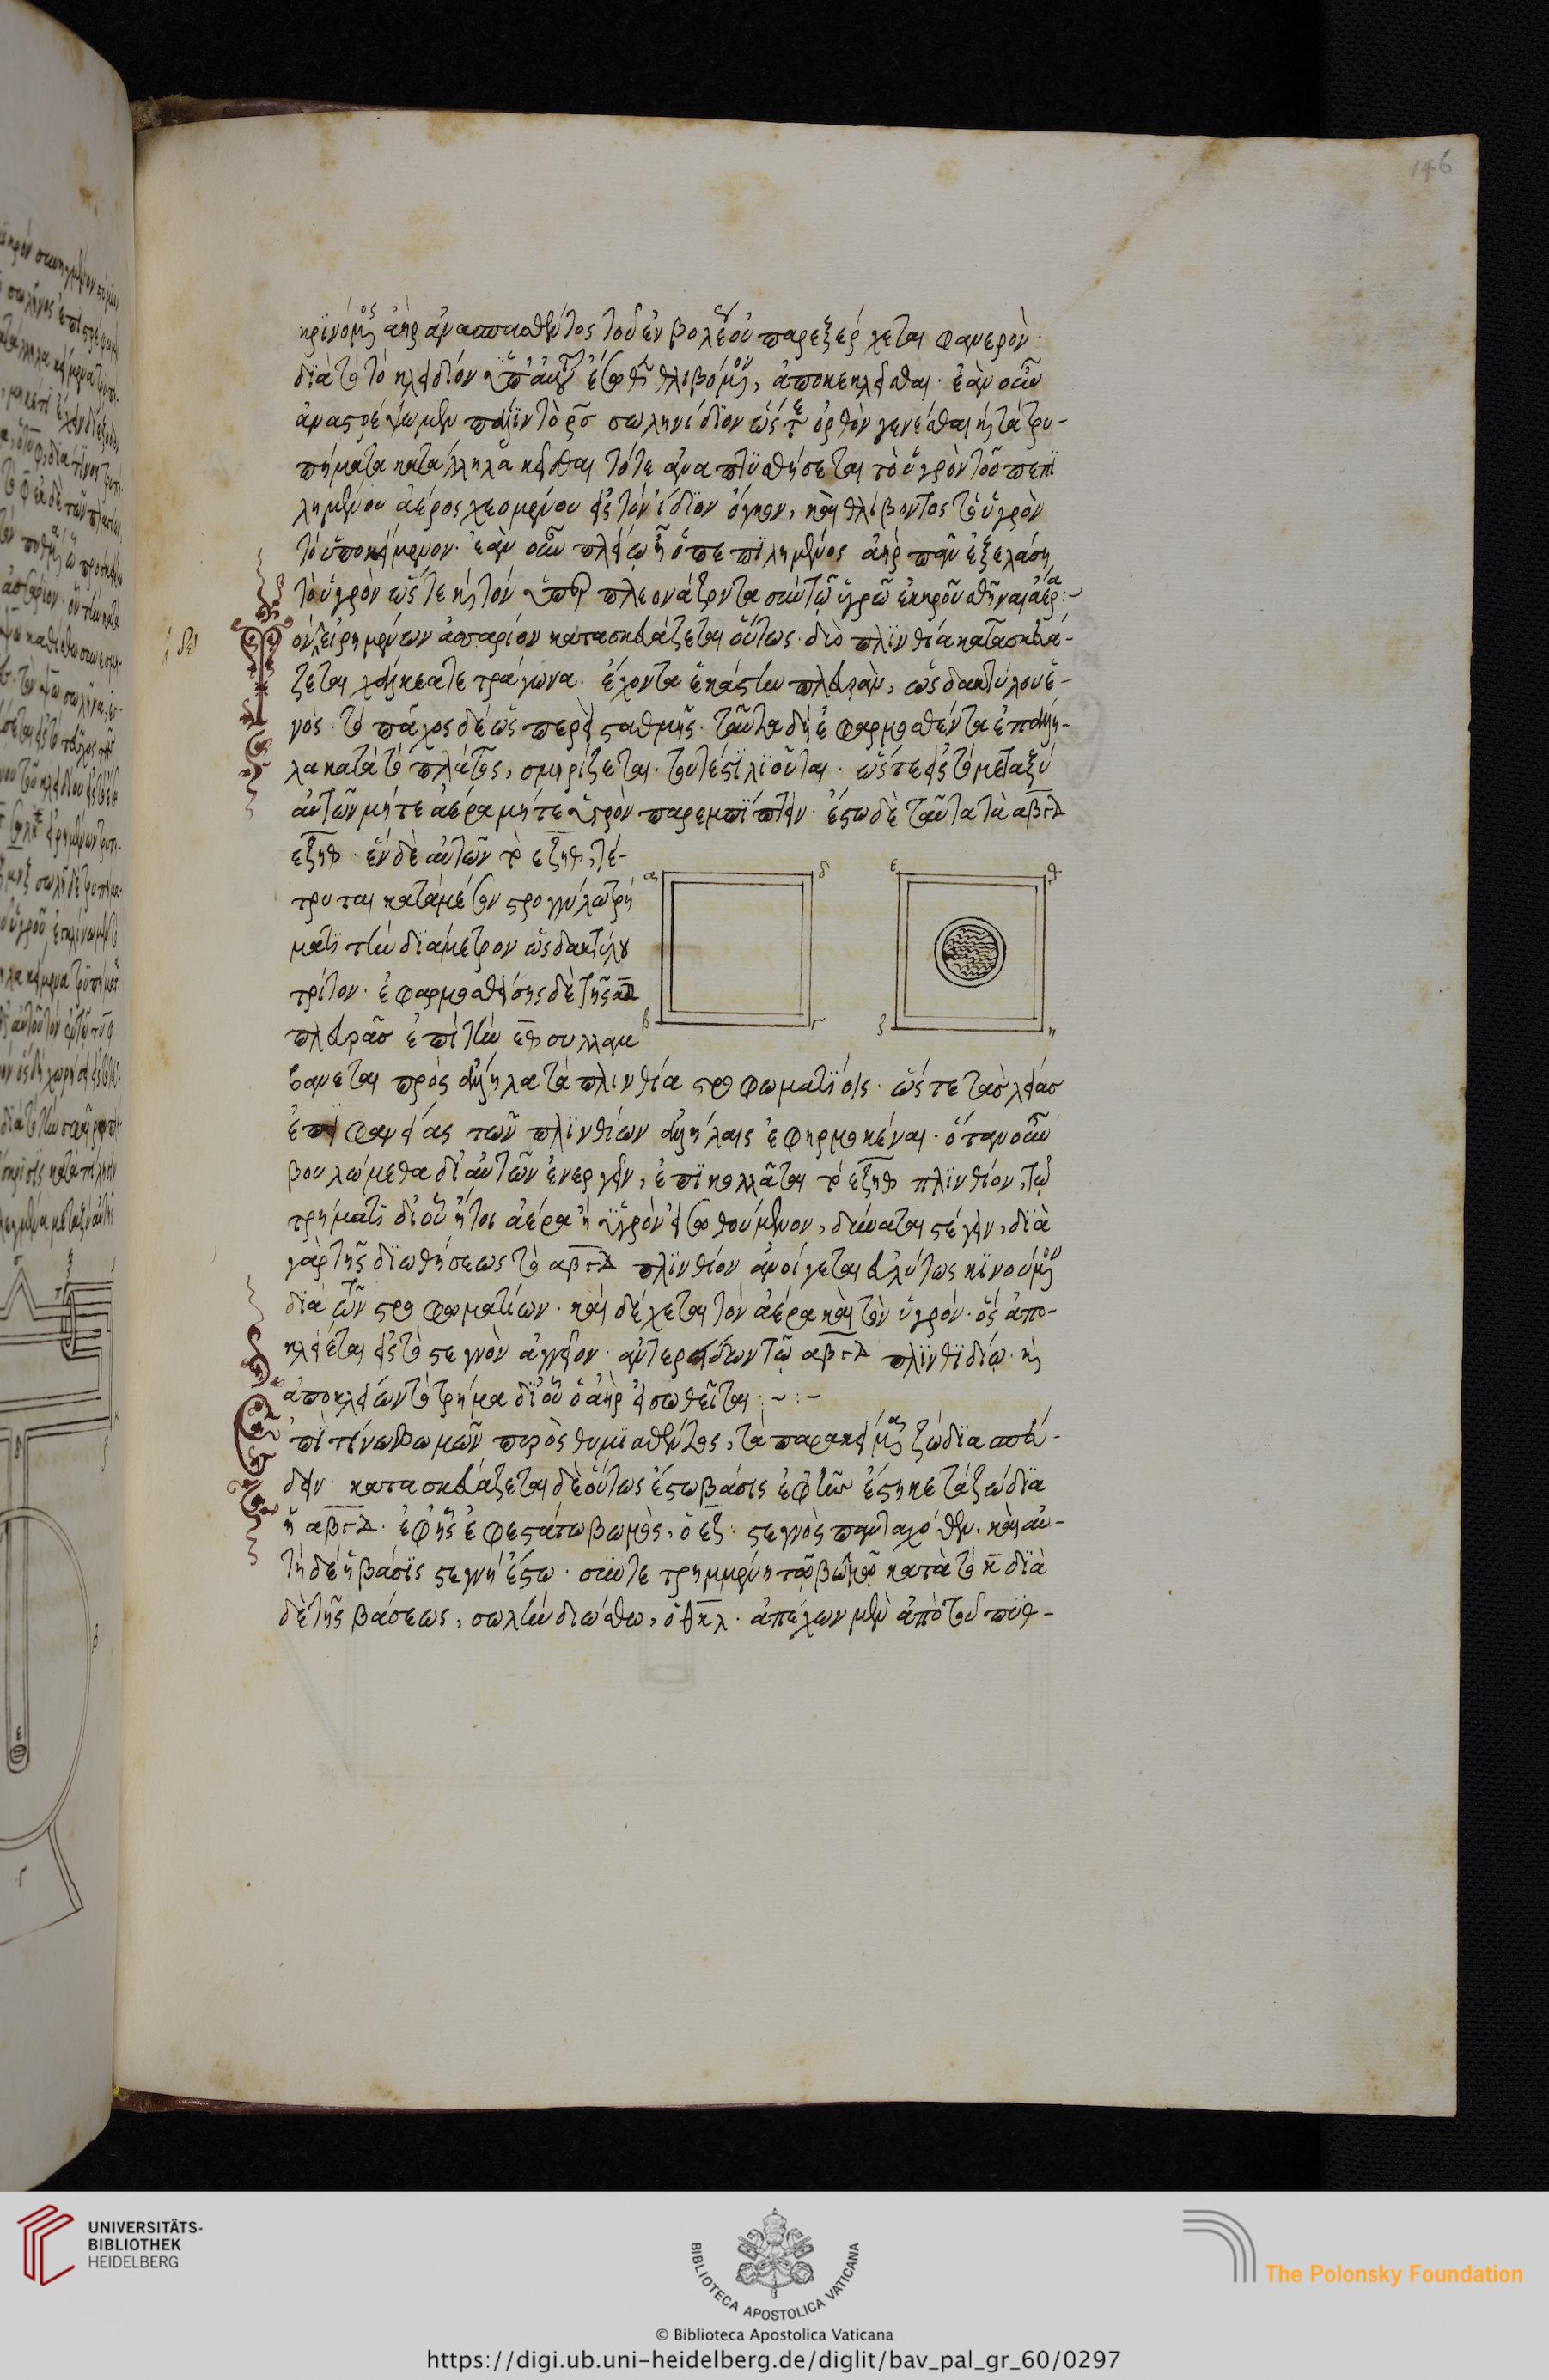 146
κρινόμενος ἀὴρ ἀνασπασθέντος τοῦ ἐμβολέου οὐ παρεξέρχεται φανερὸν·
διὰ τὸ τὸ κλειδίον ὑπ' αὐτοῦ ἔσωθεν θλιβόμενον, ἀποκεκλεῖσθαι· ἐὰν οὖν
ἀναστρέψωμεν πάλιν τὸ ρσ σωληνίδιον ὥστε ὀρθὸν γενέσθαι καὶ τὰ τρυ-
πήματα κατάλληλα κεῖσθαι τότε ἀναπτυσθήσεται τὸ ὑγρὸν τοῦ πεπι
λημένου ἀέρος χεομένου εἰς τὸν ἴδιον ὄγκον, καὶ θλίβοντος τὸ ὑγρὸν
τὸ ὑποκείμενον· ἐὰν οὖν πλείων ᾖ ὁ πεπιλημένος ἀὴρ πᾶν ἐξελάσει
τὸ ὑγρὸν ὥστε καὶ τὸν πλεονάζοντα σὺν τῷ ὑγρῷ ἐκκρουσθῆναι ἀέρα:~
ὸν εἰρημένων ἀσσαρίον κατασκευάζεται οὕτως· δύο πλινθία κατασκευά-
ζεται χάλκεα τετράγωνα· ἔχοντα ἑκάστην πλευρὰν, ὡς δακτύλου ἑ-
νός· τὸ πάχος δὲ ὥσπερεὶ σταθμῆς· ταῦτα δὴ ἐφαρμοσθέντα ἐπάλλη-
λα κατὰ τὸ πλάτος, σμηρίζεται· τουτέστι λιοῦται· ὥστε εἰς τὸ μεταξὺ
αὐτῶν μήτε ἀέρα μήτε ὑγρὸν παρεμπίπτειν· ἔστω δὲ ταῦτα τὰ αβγδ
εζηθ· ἓν δὲ αὐτῶν τὸ εζηθ, τέ-
τρυται κατὰ μέσον στρογγύλω τρή
ματι τὴν διάμετρον ὡς δακτύλου
τρίτον· ἐφαρμοσθείσης δὲ τῆς αδ
πλευρᾶς ἐπὶ τὴν εθ συλλαμ
βανεται πρὸς ἄλληλα τὰ πλινθία στροφωματίοις· ὥστε τὰς λείας
ἐπιφανείας τῶν πλινθίων ἀλλήλαις ἐφηρμοκέναι· ὅταν οὖν
βουλώμεθα δι' αὐτῶν ἐνεργεῖν, ἐπικολλᾶται τὸ εζηθ πλινθίον, τῷ
τρήματι δι' οὗ ἤτοι ἀέρα ἢ ὑγρὸν εἰσωθούμενον, δύναται στέγειν, διὰ
γὰρ τῆς διωθήσεως τὸ αβγδ πλινθίον ἀνοίγεται εὐλύτως κινούμενον
διὰ τῶν στροφωματίων· καὶ δέχεται τὸν ἀέρα καὶ τὸν ὑγρόν· ὃς ἀπο-
κλείεται εἰς τὸ στεγνὸν ἀγγεῖον· ἀντερείδων τῷ αβγδ πλινθιδίῳ· καὶ
ἀποκλείων τὸ τρῆμα δι' οὗ ὁ ἀὴρ εἰσωθεῖται :~:~
πὶ τίνων βωμῶν πυρὸς θυμιαθέντος, τὰ παρακείμενα ζώδια σπέν-
δειν· κατασκευάζεται δὲ οὕτως ἔστω βάσις ἐφ' ὧν ἕστηκε τὰ ζώδια
ἡ αβγδ· ἐφ' ἧς ἐφεστάτω βωμὸς, ὁ εζ· στεγνὸς πανταχόθεν· καὶ αὐ-
τὴ δὲ ἡ βάσις στεγνὴ ἔστω· συντετρημμένη τῷ βωμῷ κατὰ τὸ κ διὰ
δὲ τῆς βάσεως, σωλὴν διώσθω, ὁ θκλ· ἀπέχων μὲν ἀπὸ τοῦ πυθ-
α
δ
β
γ
ε
θ
ζ
η
UNIVERSITÄTS-
BIBLIOTHEK
HEIDELBERG
BIBLIOTECA APOSTOLICA VATICANA
© Biblioteca Apostolica Vaticana
The Polonsky Foundation
https://digi.ub.uni-heidelberg.de/diglit/bav_pal_gr_60/0297